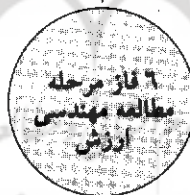 ٦ فاز مرحله
مطالعه مهندسی
ارزش